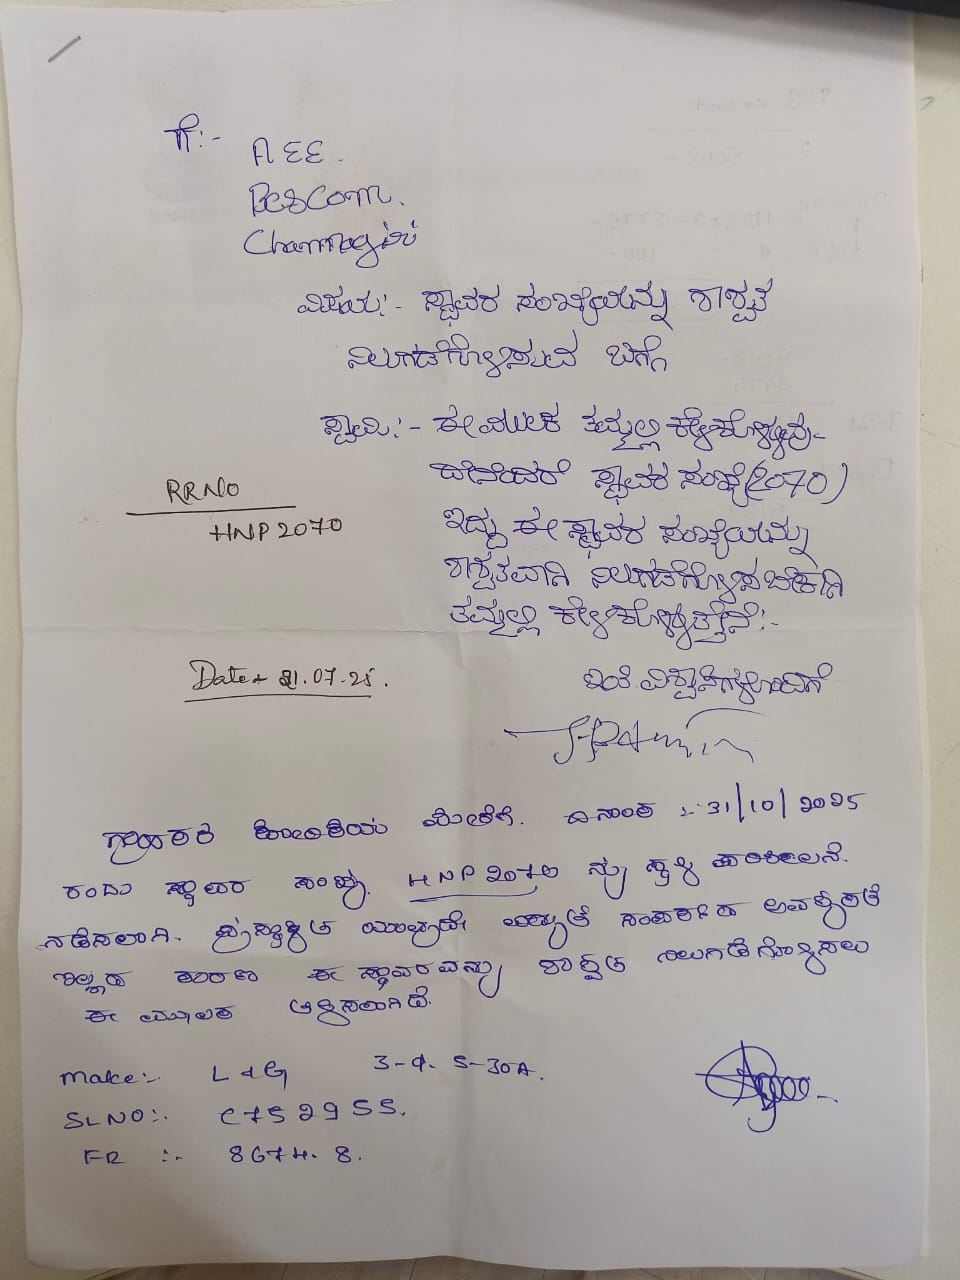 ಗೆ:-
AEE.
Bescom.
Channagiri
ವಿಷಯ:- ಸ್ಥಾವರ ಸಂಖ್ಯೆಯನ್ನು ಶಾಶ್ವತ
ನಿಲುಗಡೆಗೊಳಿಸುವ ಬಗ್ಗೆ
ಸ್ವಾಮಿ:- ಈ ಮೂಲಕ ತಮ್ಮಲ್ಲಿ ಕೇಳಿಕೊಳ್ಳುವು-
ದೇನೆಂದರೆ ಸ್ಥಾವರ ಸಂಖ್ಯೆ(2070)
ಇದ್ದು ಈ ಸ್ಥಾವರ ಸಂಖ್ಯೆಯನ್ನು
ಶಾಶ್ವತವಾಗಿ ನಿಲುಗಡೆಗೊಳಿಸಬೇಕಾಗಿ
ತಮ್ಮಲ್ಲಿ ಕೇಳಿಕೊಳ್ಳುತ್ತೇನೆ:-
RRNO
HNP2070
Date 21.07.25.
ಇಂತಿ ವಿಶ್ವಾಸಿಗಳೊಂದಿಗೆ
ಗ್ರಾಹಕರ ಕೋರಿಕೆಯ ಮೇರೆಗೆ. ದಿನಾಂಕ :- 31/10/2025
ರಂದು ಸ್ಥಾವರ ಸಂಖ್ಯೆ HNP 2070 ನ್ನು ಸ್ಥಳ ಪರಿಶೀಲನೆ.
ನಡೆಸಲಾಗಿ. ಪ್ರಸ್ತುತ ಯಾವುದೇ ವಿದ್ಯುತ್ ಸಂಪರ್ಕದ ಅವಶ್ಯಕತೆ
ಇಲ್ಲದ ಕಾರಣ ಈ ಸ್ಥಾವರವನ್ನು ಶಾಶ್ವತ ನಿಲುಗಡೆಗೊಳಿಸಲು
ಈ ಮೂಲಕ ತಿಳಿಸಲಾಗಿದೆ.
Make:- L&G 3-φ. 5-30A.
SLNO:- C752955.
FR :- 8674.8.